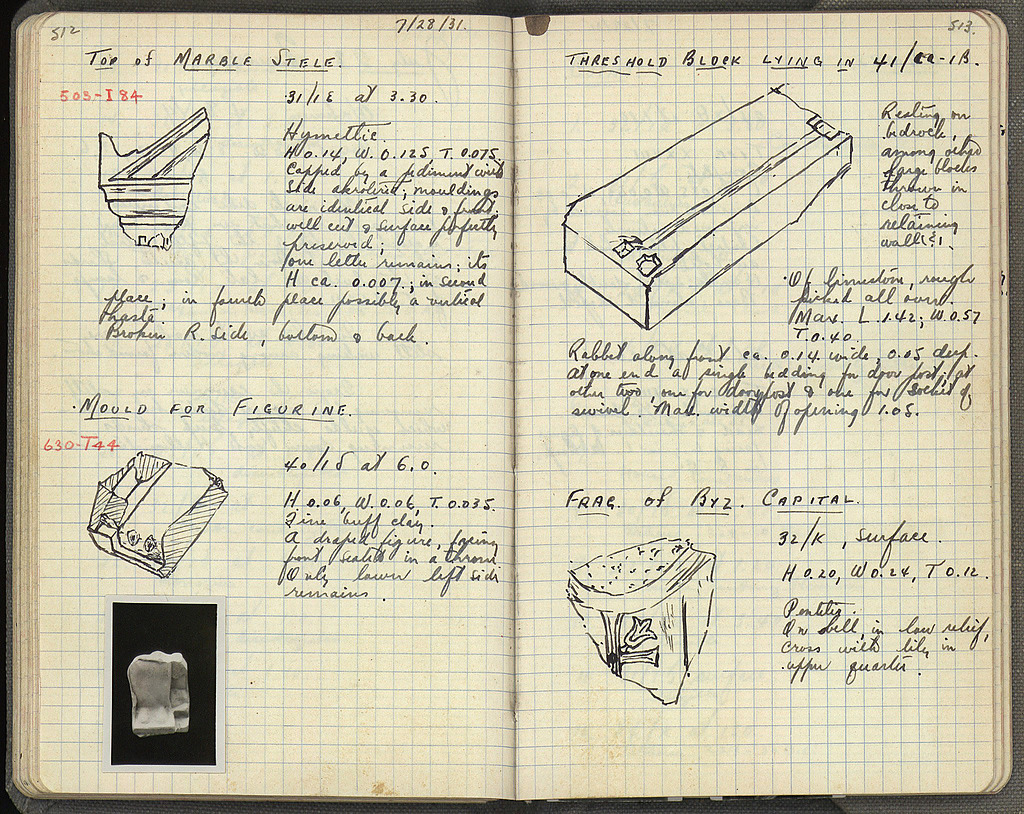 512
7/28/31.
Top of Marble Stele.
503-I 84
31/ΙΕ at 3.30.
Hymettic.
H 0.14, W. 0.125, T. 0.075.
Capped by a pediment with
side akroteria; mouldings
are identical side & front,
well cut & surface perfectly
preserved;
one letter remains; its
H ca. 0.007; in second
place; in fourth place possibly a vertical
hasta
Broken R. side, bottom & back.
Mould for Figurine.
630-T44
40/ at 6.0.
H 0.06, W. 0.06, T. 0.035.
Fine buff clay.
A draped figure, facing
front seated in a throne.
Only lower left side
remains.
513.
Threshold Block lying in 41/
Resting on
bedrock,
among other
large blocks
thrown in
close to
retaining
wall
Of limestone, rough
picked all over.
Max. L. 1.42; W 0.57
T. 0.40.
Rabbet along front ca. 0.14 wide, 0.05 deep.
At one end a single bedding for door post; at
other two, one for doorpost & one for socket of
swivel. Max. width of opening 1.05.
Frag. of Byz. Capital.
32/Κ, surface.
H 0.20, W 0.24, T 0.12.
Pentelic.
On bell, in low relief,
cross with lily in
upper quarter.